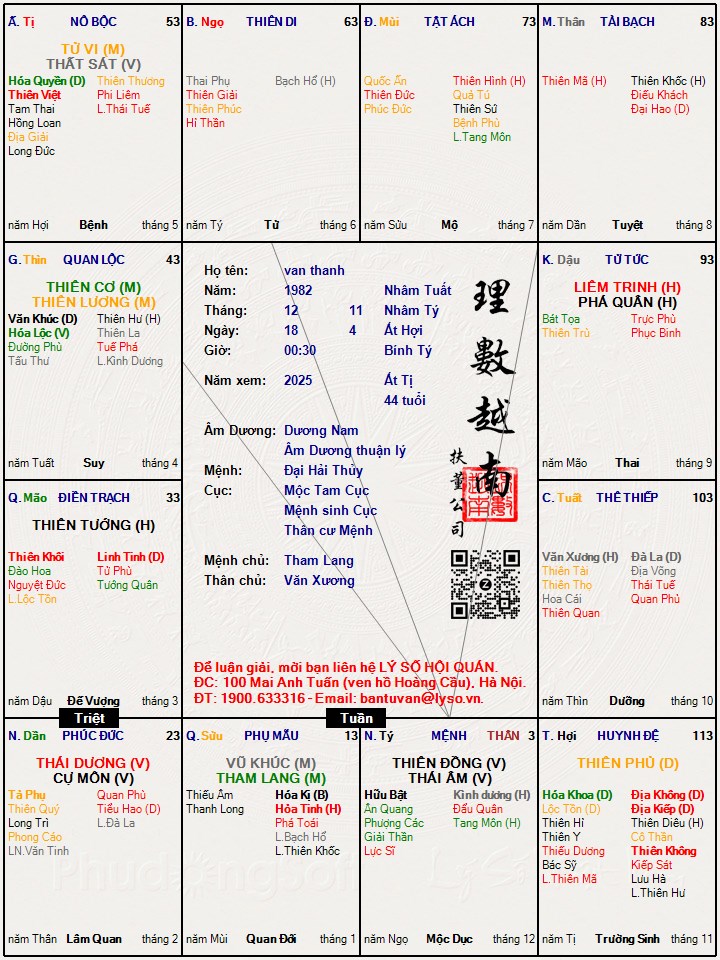 Ấ. Tị NÔ BỘC 53
TỬ VI (M)
THẤT SÁT (V)
Hóa Quyền (D) Thiên Thương
Thiên Việt Phi Liêm
Tam Thai L.Thái Tuế
Hồng Loan
Địa Giải
Long Đức
năm Hợi Bệnh tháng 5
B. Ngọ THIÊN DI 63
Thai Phụ Bạch Hổ (H)
Thiên Giải
Thiên Phúc
Hỉ Thần
năm Tý Tử tháng 6
Đ. Mùi TẬT ÁCH 73
Quốc Ấn Thiên Hình (H)
Thiên Đức Quả Tú
Phúc Đức Thiên Sứ
Bệnh Phù
L.Tang Môn
năm Sửu Mộ tháng 7
M. Thân TÀI BẠCH 83
Thiên Mã (H) Thiên Khốc (H)
Điếu Khách
Đại Hao (D)
năm Dần Tuyệt tháng 8
G. Thìn QUAN LỘC 43
THIÊN CƠ (M)
THIÊN LƯƠNG (M)
Văn Khúc (D) Thiên Hư (H)
Hóa Lộc (V) Thiên La
Đường Phù Tuế Phá
Tấu Thư L.Kình Dương
năm Tuất Suy tháng 4
Họ tên: van thanh
Năm: 1982 Nhâm Tuất
Tháng: 12 11 Nhâm Tý
Ngày: 18 4 Ất Hợi
Giờ: 00:30 Bính Tý
Năm xem: 2025 Ất Tị
44 tuổi
Âm Dương: Dương Nam
Âm Dương thuận lý
Mệnh: Đại Hải Thủy
Cục: Mộc Tam Cục
Mệnh sinh Cục
Thân cư Mệnh
Mệnh chủ: Tham Lang
Thân chủ: Văn Xương
理數越南
扶董公司
Để luận giải, mời bạn liên hệ LÝ SỐ HỘI QUÁN.
ĐC: 100 Mai Anh Tuấn (ven hồ Hoàng Cầu), Hà Nội.
ĐT: 1900.633316 - Email: bantuvan@lyso.vn.
K. Dậu TỬ TỨC 93
LIÊM TRINH (H)
PHÁ QUÂN (H)
Bát Tọa Trực Phù
Thiên Trù Phục Binh
năm Mão Thai tháng 9
Q. Mão ĐIỀN TRẠCH 33
THIÊN TƯỚNG (H)
Thiên Khôi Linh Tinh (D)
Đào Hoa Tử Phù
Nguyệt Đức Tướng Quân
L.Lộc Tồn
năm Dậu Đế Vượng tháng 3
C. Tuất THÊ THIẾP 103
Văn Xương (H) Đà La (D)
Thiên Tài Địa Võng
Thiên Thọ Thái Tuế
Hoa Cái Quan Phủ
Thiên Quan
năm Thìn Dưỡng tháng 10
Triệt
Tuần
N. Dần PHÚC ĐỨC 23
THÁI DƯƠNG (V)
CỰ MÔN (V)
Tả Phụ Quan Phù
Thiên Quý Tiểu Hao (D)
Long Trì L.Đà La
Phong Cáo
LN.Văn Tinh
năm Thân Lâm Quan tháng 2
Q. Sửu PHỤ MẪU 13
VŨ KHÚC (M)
THAM LANG (M)
Thiếu Âm Hóa Kị (B)
Thanh Long Hỏa Tinh (H)
Phá Toái
L.Bạch Hổ
L.Thiên Khốc
năm Mùi Quan Đới tháng 1
N. Tý MỆNH THÂN 3
THIÊN ĐỒNG (V)
THÁI ÂM (V)
Hữu Bật Kình dương (H)
Ân Quang Đẩu Quân
Phượng Các Tang Môn (H)
Giải Thần
Lực Sĩ
năm Ngọ Mộc Dục tháng 12
T. Hợi HUYNH ĐỆ 113
THIÊN PHỦ (D)
Hóa Khoa (D) Địa Không (D)
Lộc Tồn (D) Địa Kiếp (D)
Thiên Hỉ Thiên Diêu (H)
Thiên Y Cô Thần
Thiếu Dương Thiên Không
Bác Sỹ Kiếp Sát
L.Thiên Mã Lưu Hà
L.Thiên Hư
năm Tị Trường Sinh tháng 11